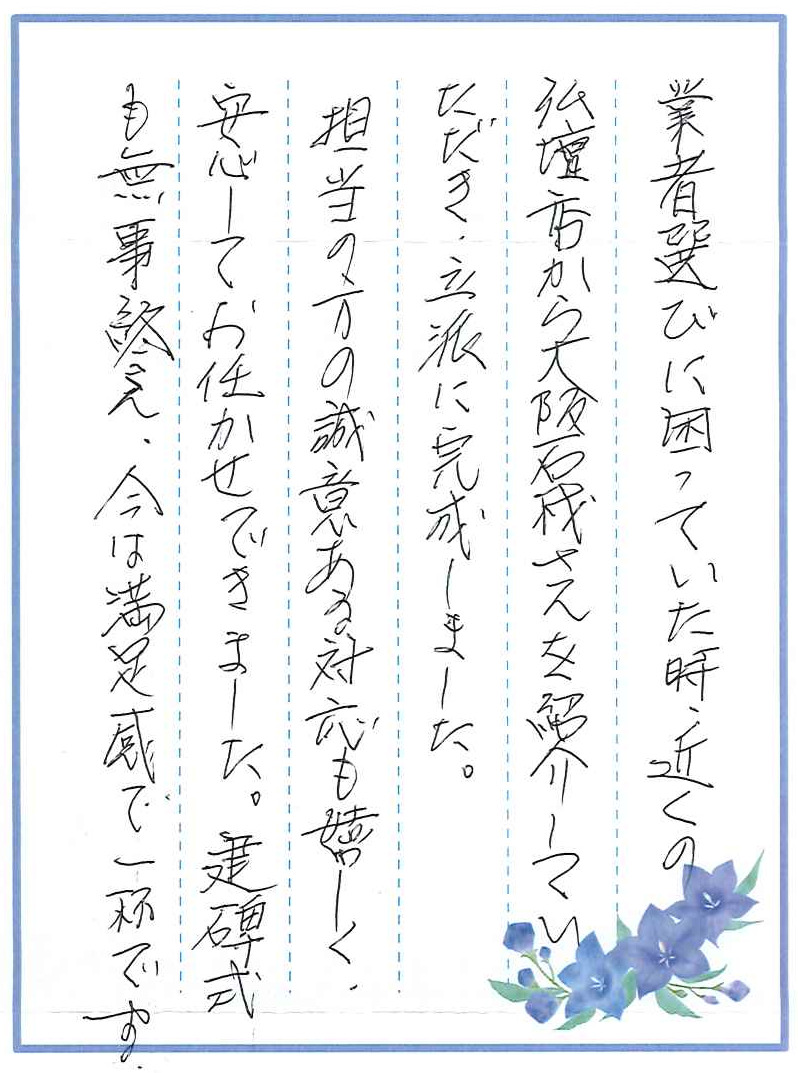 業者選びに困っていた時、近くの
仏壇店から大阪石材さんを紹介してい
ただき、立派に完成しました。
担当の方の誠意ある対応も嬉しく、
安心してお任かせできました。建碑式
も無事終え、今は満足感で一杯です。